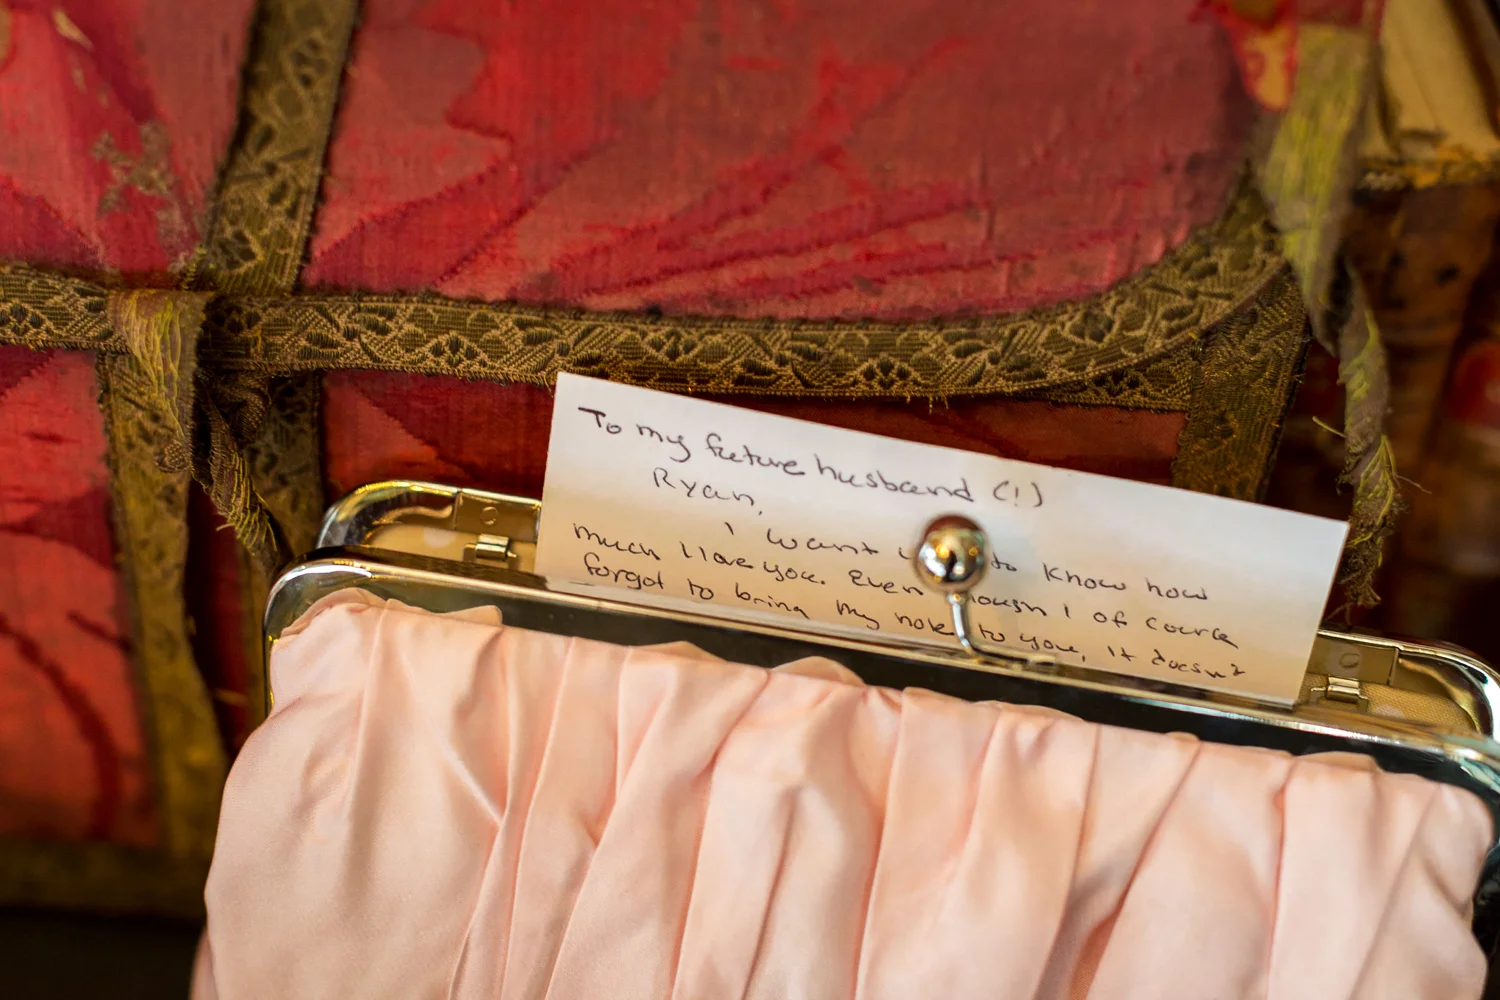 To my future husband (!)
Ryan,
I want to know how
much I love you. Even though I of course
forgot to bring my note to you, it doesn't